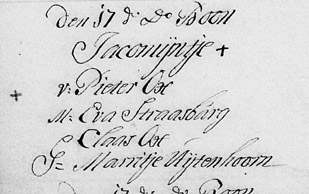 Den 17 do Do Boon
Jacomijntje +
v: Pieter Os
M: Eva Straasburg
G Claas Os
G= Marritje Uijtenhoorn
den 17 do do Boon